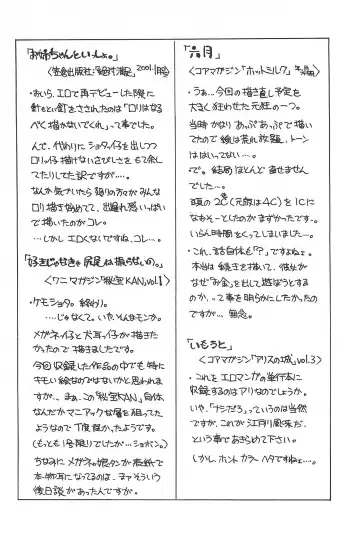 「お姉ちゃんといっしょ。」
・おいら、エロで再デビューした際に
針もとい釘をさされたのは「ロリはなる
べく描かないでくれ」って事でした。
んで、代わりにショタっ仔を出しつつ
ロリっ仔描けないさびしさを
てたりしてた訳ですが‥‥。
なんか気づいたら周りの方々がみんな
ロリ描き始めてて、出遅れ感いっぱい
で描いたのがコレ。
…しかしエロくないですね、コレ…。
「好きじゃなきゃ尻尾は振らないの。」
<ワニマガジン「秘蜜KAN」vol.1>
・ケモショタ。終わり。
‥‥じゃなくて。いや、そんなモンか。
メガネっ仔と犬耳っ仔が描きた
かったので描きましたです。
今回収録した作品の中でも特に
キモい絵なのではないかと思われま
すが…、まぁ、この「秘蜜KAN」自体
なんだかマニアックな層を狙ってた
ようなので丁度良かったようです。
(もっとも1号限りでしたが…ショボン。)
ちなみにメガネの娘さんが表紙で
になってるのは、まァそういう
後日談があった人ですが。
「六月」
<コアマガジン「ホットミルク」
・うぁ…、今回の描き直し予定を
大きく狂わせた元凶の一つ。
当時かなりあっぷあっぷで描い
てたので線は荒れ放題、トーン
ははいってない…。
で。結局ほとんど直せません
でした…。
頭の2C(元原は4C)を1Cに
なおそーとしたのがまずかったです…。
いらん時間をくってしまいました…。
・これ、話自体も「?」ですよねェ。
本当は続きを描いて、彼女が
なぜ「お金」を出して遊ぼうとする
のか、って事を明らかにしたかったの
ですが…。無念。
「いもうと」
<コアマガジン「アリスの城」vol.3>
・これをエロマンガの単行本に
収録するのはアリなのでしょうか。
いや、「ナシだろ」っていうのは当然
ですが、これが江戸川風味だ、
という事であきらめて下さい。
しかし、ホントカラーヘタですねェ…。